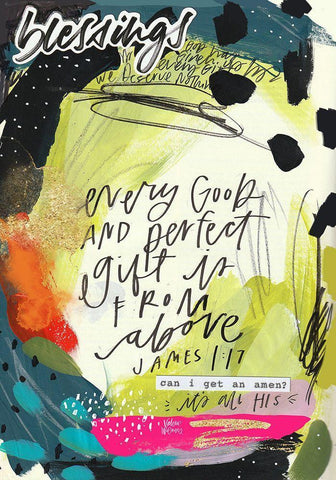 blessings
God
every
we Deserve Nothing
every GooD
AND perfect
gift is
FROM
above
JAMES 1:17
can i get an amen?
it's all HIS